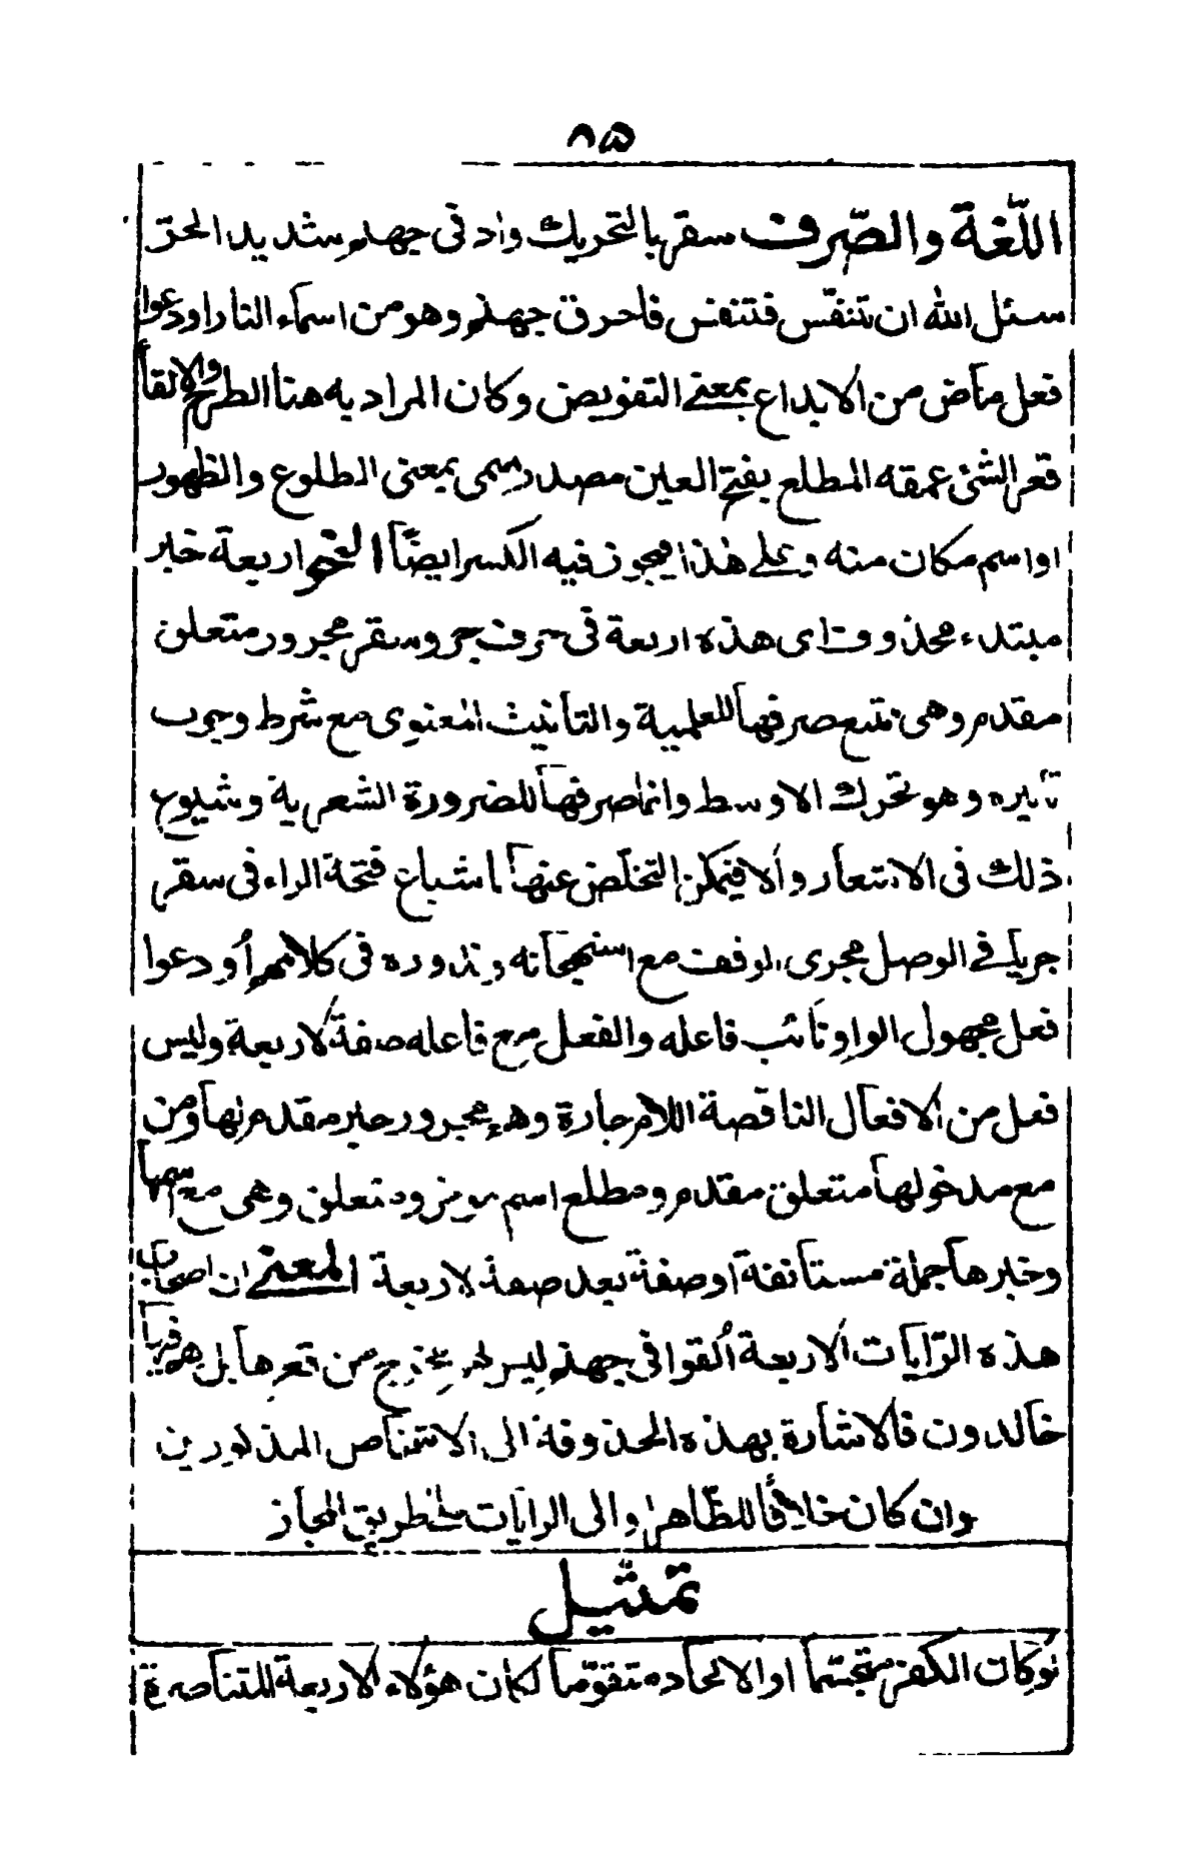 ٨٥
اللّغة والصّرف سقر بالتحريك واد فى جهنم شديد الحر
سئل الله ان تنفّس فتنفس فاحرق جهنم وهو من اسماء النار اودعوا
فعل ماض من الايداع بمعنى التفويض وكان المراد به هنا الطرح والالقاء
قعر الشئ عمقه المطلع بفتح العين مصدر ميمى بمعنى الطلوع والظهور
او اسم مكان منه وعلى هذا يجوز فيه الكسر ايضاً النحو اربعة خبر
مبتدء محذوف اى هذه اربعة فى حرف جر وسقر مجرور متعلق
مقدم وهى تمنع صرفها للعلمية والتأنيث المعنوى مع شرط وجوب
تأثيره وهو تحرك الاوسط وانما صرفها للضرورة الشعرية وشيوع
ذلك فى الاشعار والا فيمكن التخلّص عنها باشباع فتحة الراء فى سقر
جريا فى الوصل مجرى الوقف مع استهجانه وندوره فى كلامهم اُودعوا
فعل مجهول الواو نائب فاعله والفعل مع فاعله صفة لاربعة وليس
فعل من الافعال الناقصة اللام جارة وهم مجرور خبر مقدم لها ومن
مع مدخولها متعلق مقدم ومطلع اسم مؤخر ومتعلق وهى مع اسمها
وخبرها جملة مستانفة او صفة بعد صفة لاربعة المعنى ان اصحاب
هذه الرّايات الاربعة اُلقوا فى جهنم ليس لهم مخرج من قعرها بل هم فيها
خالدون فالاشارة بهذه المحذوفة الى الاشخاص المذكورين
وان كان خلافاً للظّاهر او الى الرايات على طريق المجاز
تمثيل
لوكان الكفر متجسّما او الالحاد متقوّما لكان هؤلاء الاربعة المتناصرة